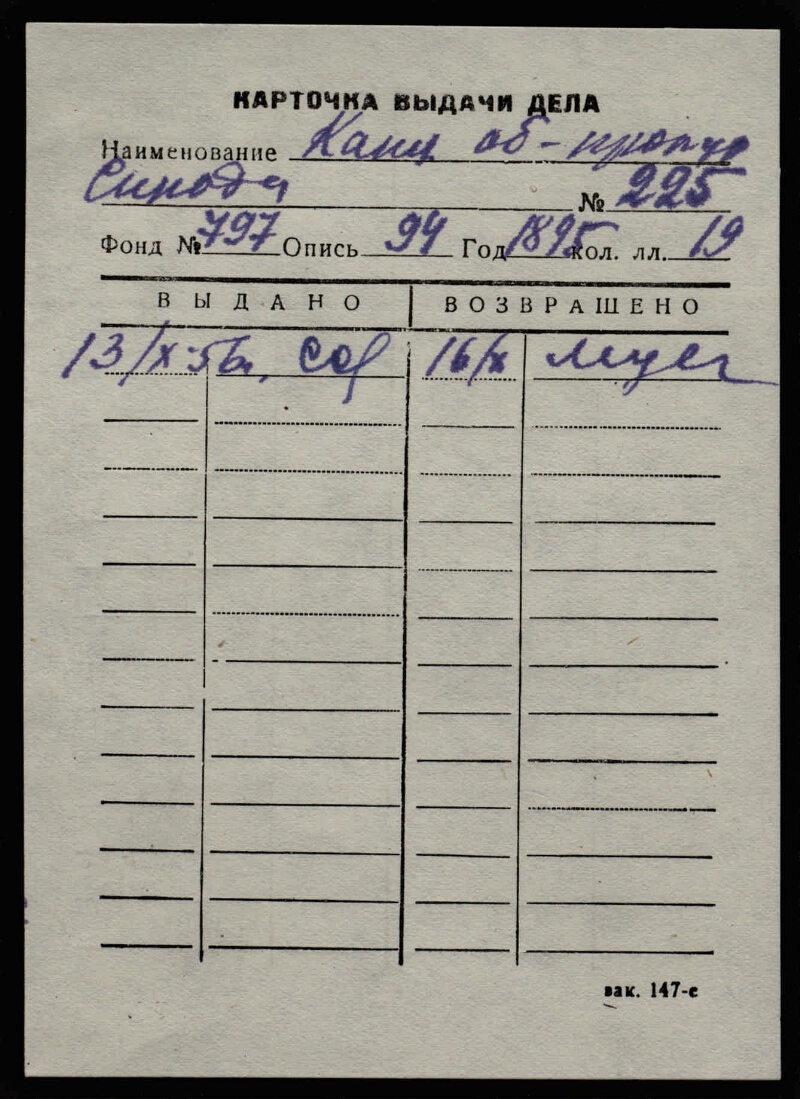 КАРТОЧКА ВЫДАЧИ ДЕЛА
Наименование Канц об-прокур
Синода № 225
Фонд № 797 Опись 94 Год 1895 кол. лл. 19
ВЫДАНО ВОЗВРАШЕНО
13/X-56г. 16/X
зак. 147-с